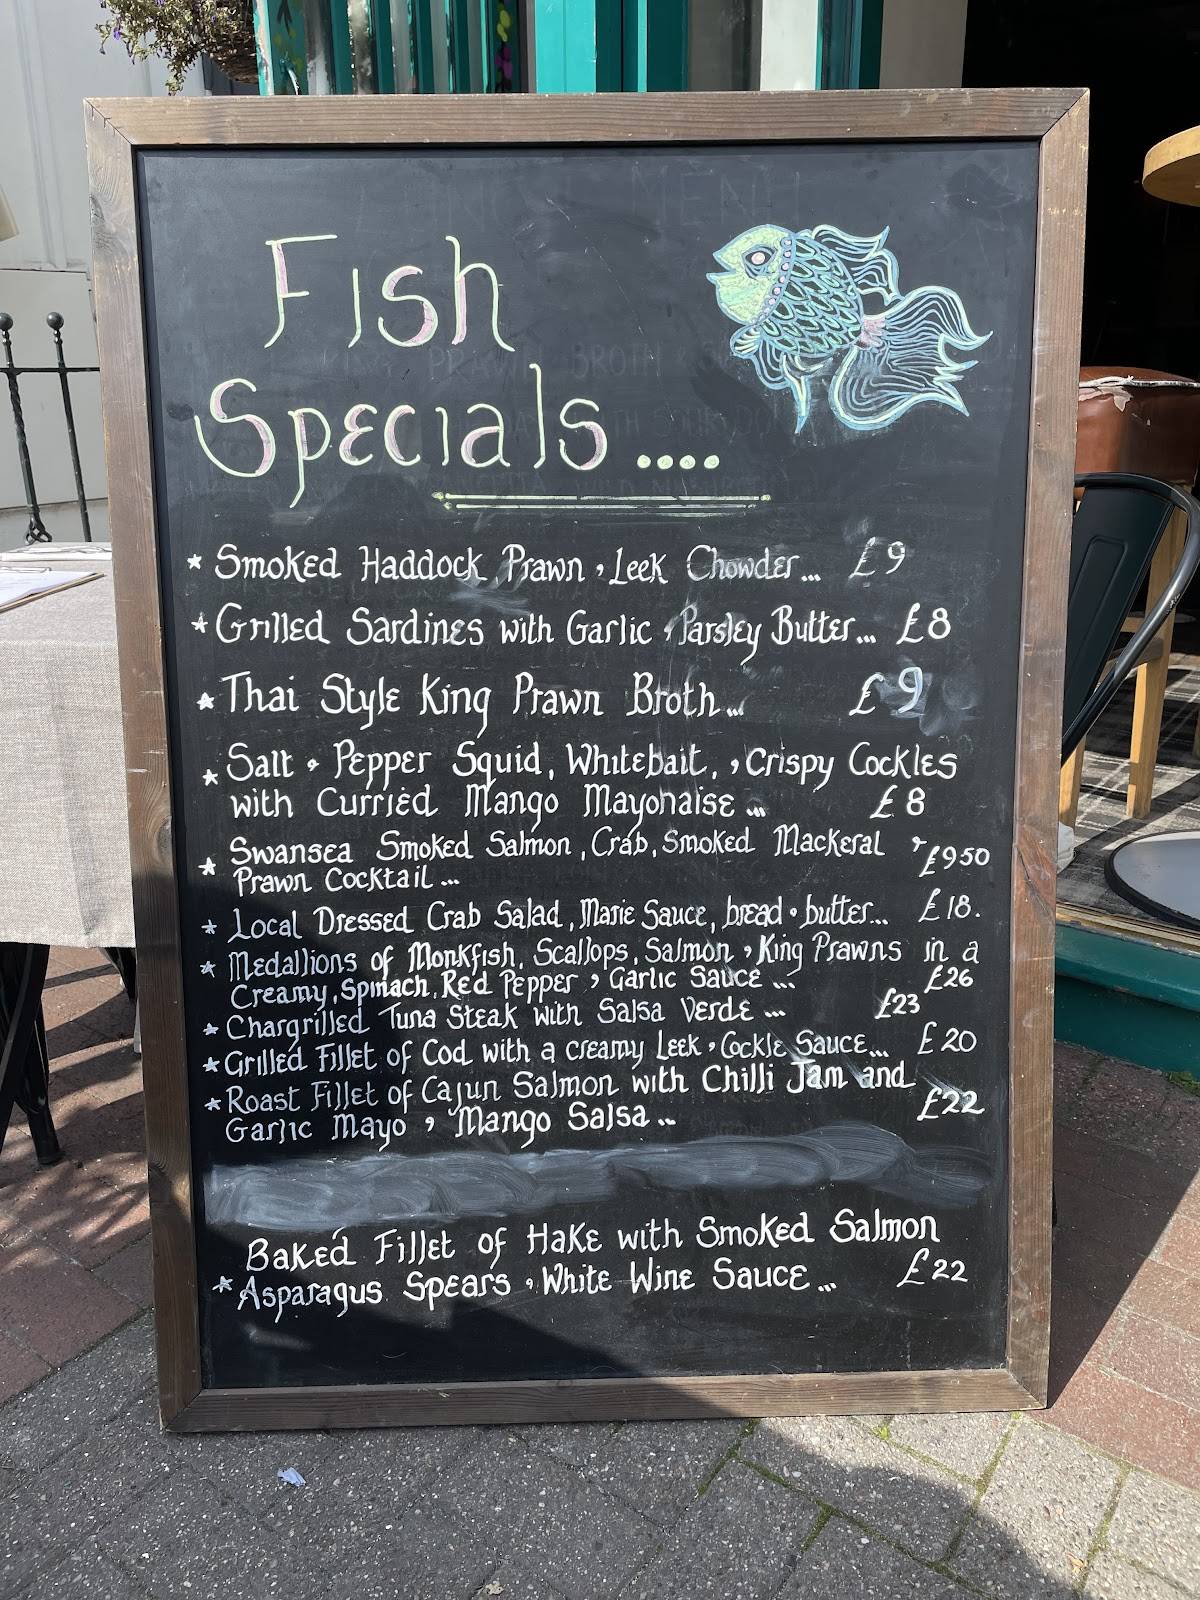 Fish
Specials....
* Smoked Haddock, Prawn, Leek Chowder... £9
* Grilled Sardines with Garlic, Parsley Butter... £8
* Thai Style King Prawn Broth... £9
* Salt & Pepper Squid, Whitebait, , Crispy Cockles
with Curried Mango Mayonaise... £8
* Swansea Smoked Salmon, Crab, Smoked Mackeral &
Prawn Cocktail... £9.50
* Local Dressed Crab Salad, Marie Sauce, bread & butter... £18.
* Medallions of Monkfish, Scallops, Salmon, King Prawns in a
Creamy, Spinach, Red Pepper, Garlic Sauce... £26
* Chargrilled Tuna Steak with Salsa Verde... £23
* Grilled Fillet of Cod with a creamy Leek, Cockle Sauce... £20
* Roast Fillet of Cajun Salmon with Chilli Jam and
Garlic Mayo, Mango Salsa... £22
Baked Fillet of Hake with Smoked Salmon
* Asparagus Spears, White Wine Sauce... £22